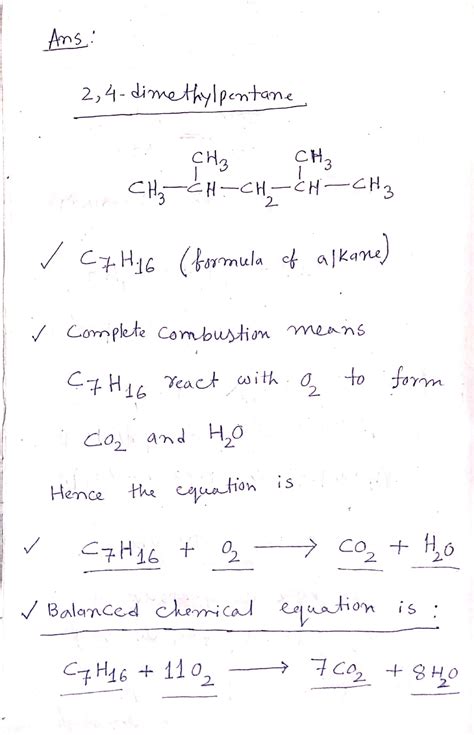 Ans:
2,4-dimethylpentane
CH₃ CH₃
CH₃—CH—CH₂—CH—CH₃
✓ C₇H₁₆ (formula of alkane)
✓ Complete combustion means
C₇H₁₆ react with O₂ to form
CO₂ and H₂O
Hence the equation is
✓ C₇H₁₆ + O₂ ⟶ CO₂ + H₂O
✓ Balanced chemical equation is :
C₇H₁₆ + 11O₂ ⟶ 7CO₂ + 8H₂O